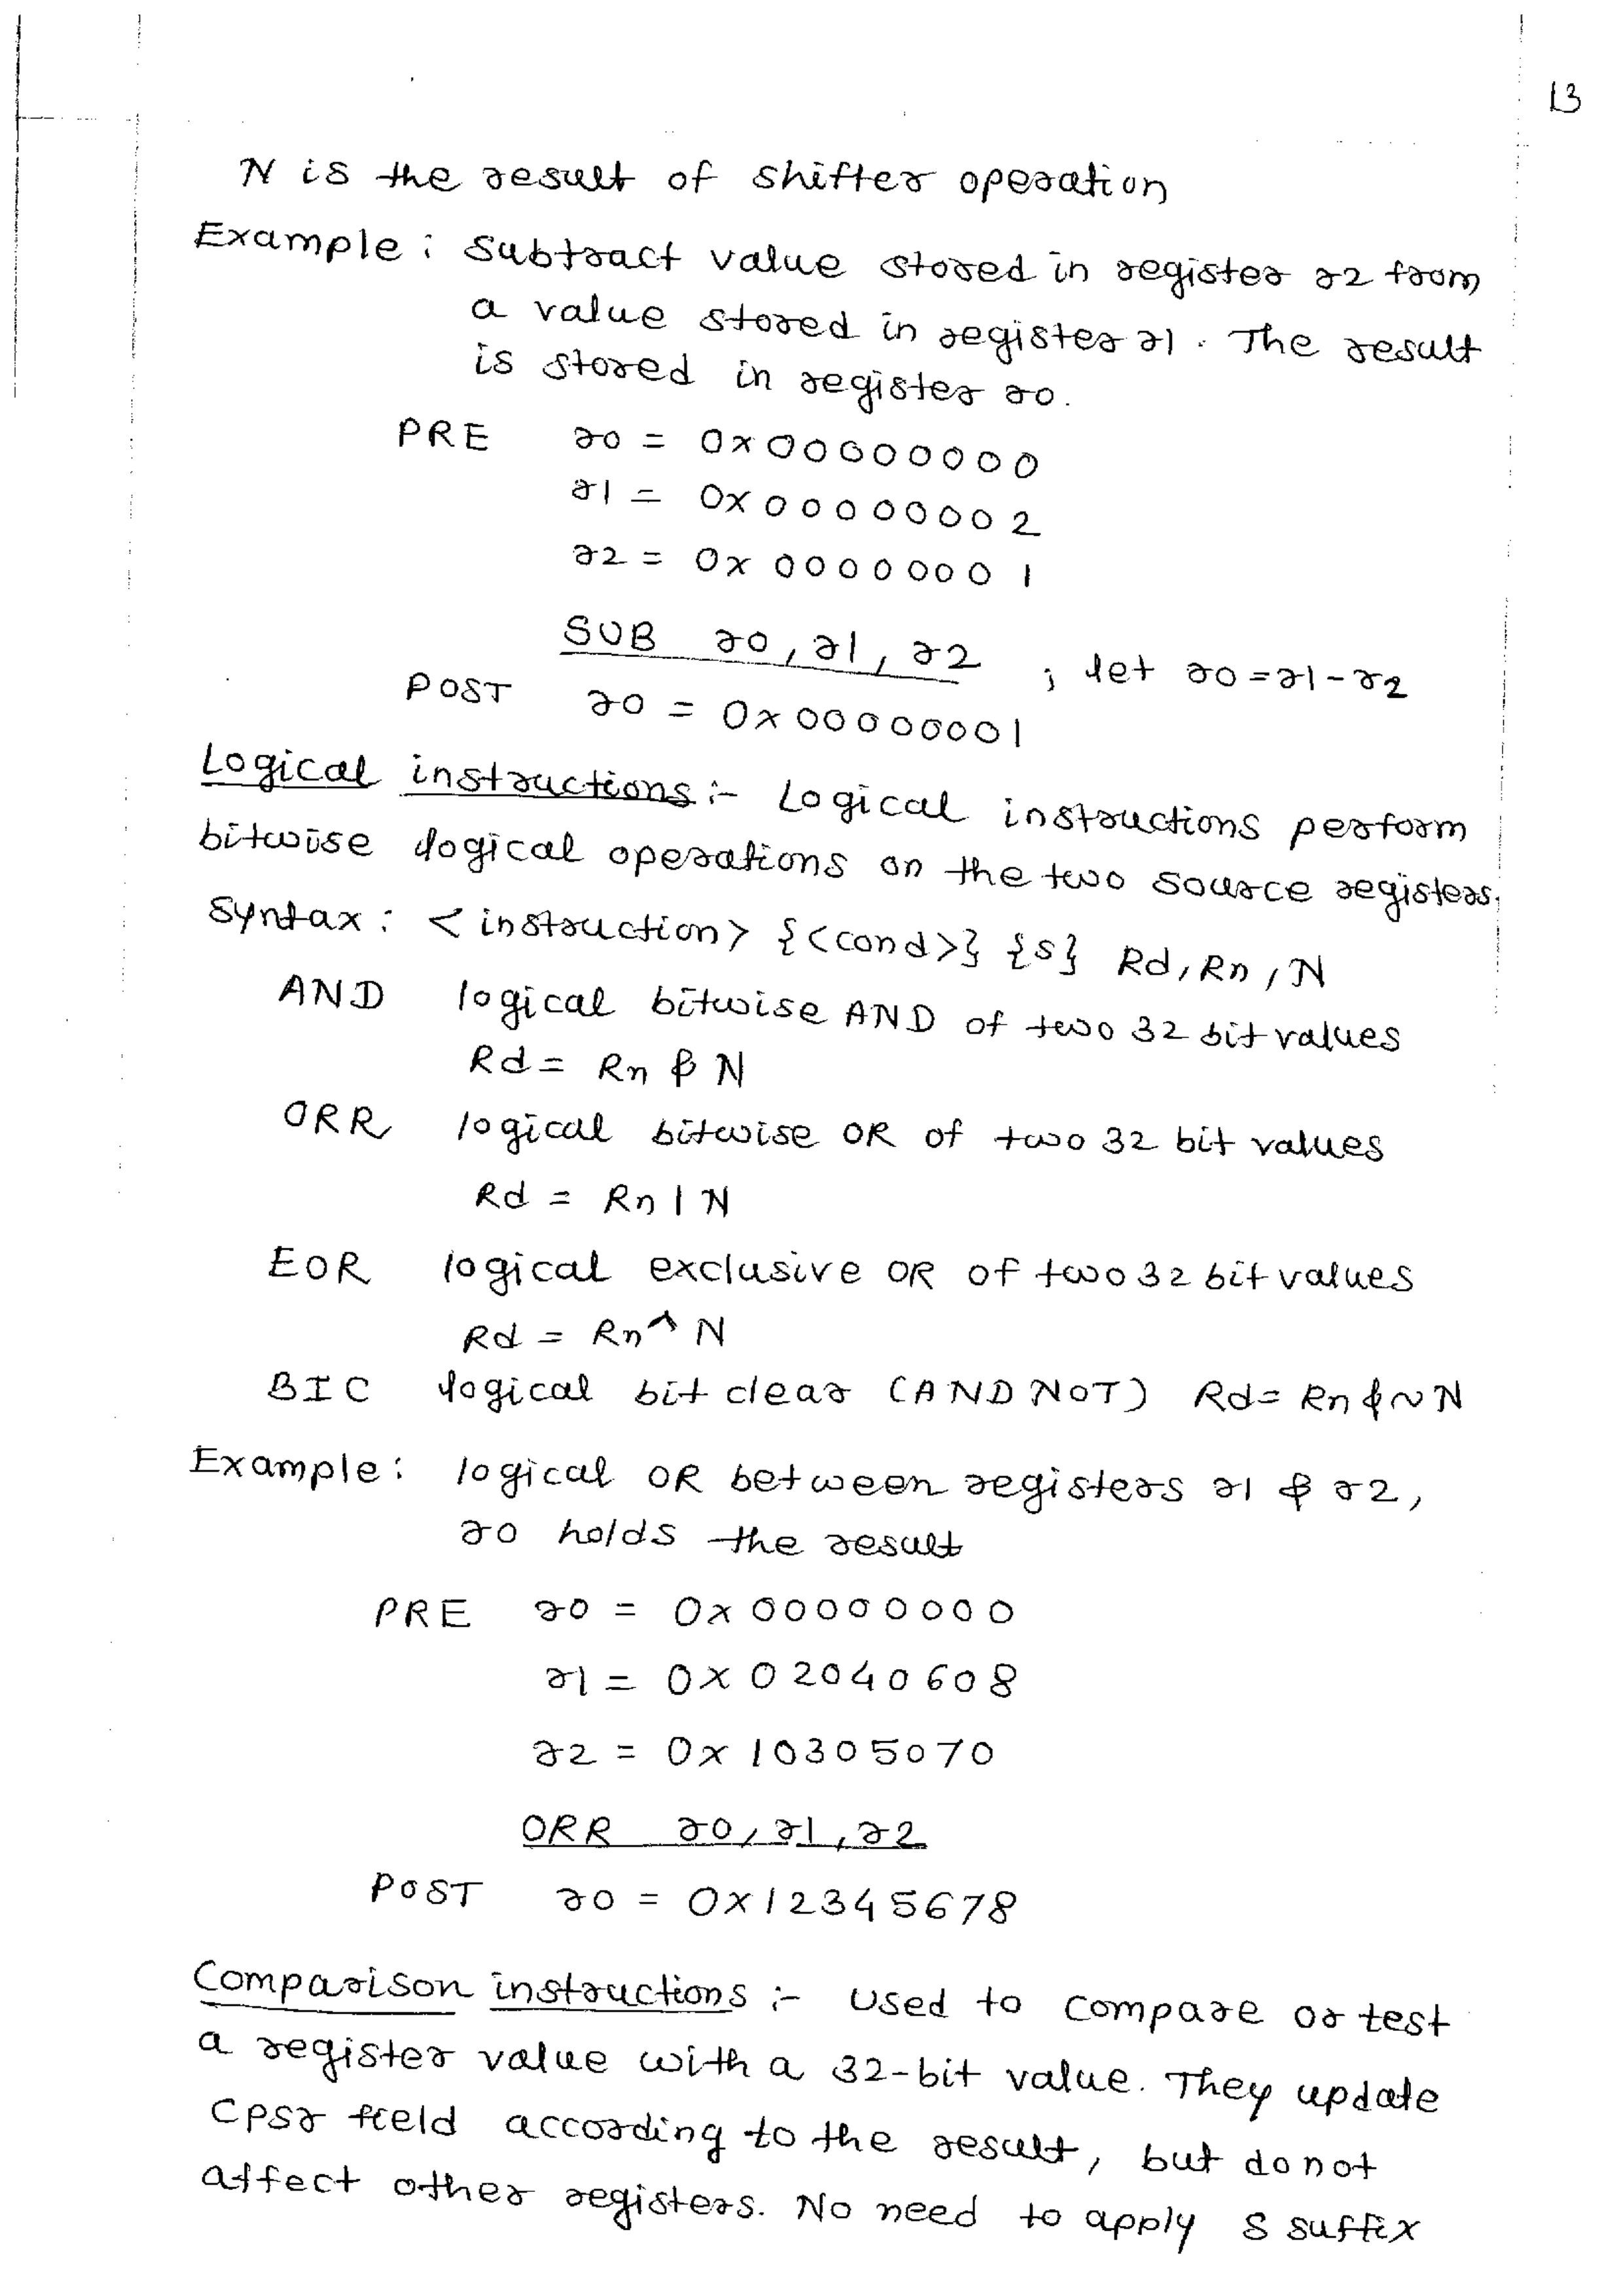 13
N is the result of shifter operation
Example : Subtract value stored in register r2 from
a value stored in register r1. The result
is stored in register r0.
PRE r0 = 0x00000000
r1 = 0x00000002
r2 = 0x00000001
SUB r0, r1, r2 ; let r0 = r1 - r2
POST r0 = 0x00000001
Logical instructions :- Logical instructions perform
bitwise logical operations on the two source registers.
Syntax : <instruction> {<cond>} {S} Rd, Rn, N
AND logical bitwise AND of two 32 bit values
Rd = Rn & N
ORR logical bitwise OR of two 32 bit values
Rd = Rn | N
EOR logical exclusive OR of two 32 bit values
Rd = Rn ^ N
BIC logical bit clear (AND NOT) Rd = Rn & ~ N
Example : logical OR between registers r1 & r2,
r0 holds the result
PRE r0 = 0x00000000
r1 = 0x02040608
r2 = 0x10305070
ORR r0, r1, r2
POST r0 = 0x12345678
Comparison instructions :- Used to compare or test
a register value with a 32-bit value. They update
Cpsr field according to the result, but do not
affect other registers. No need to apply S suffix